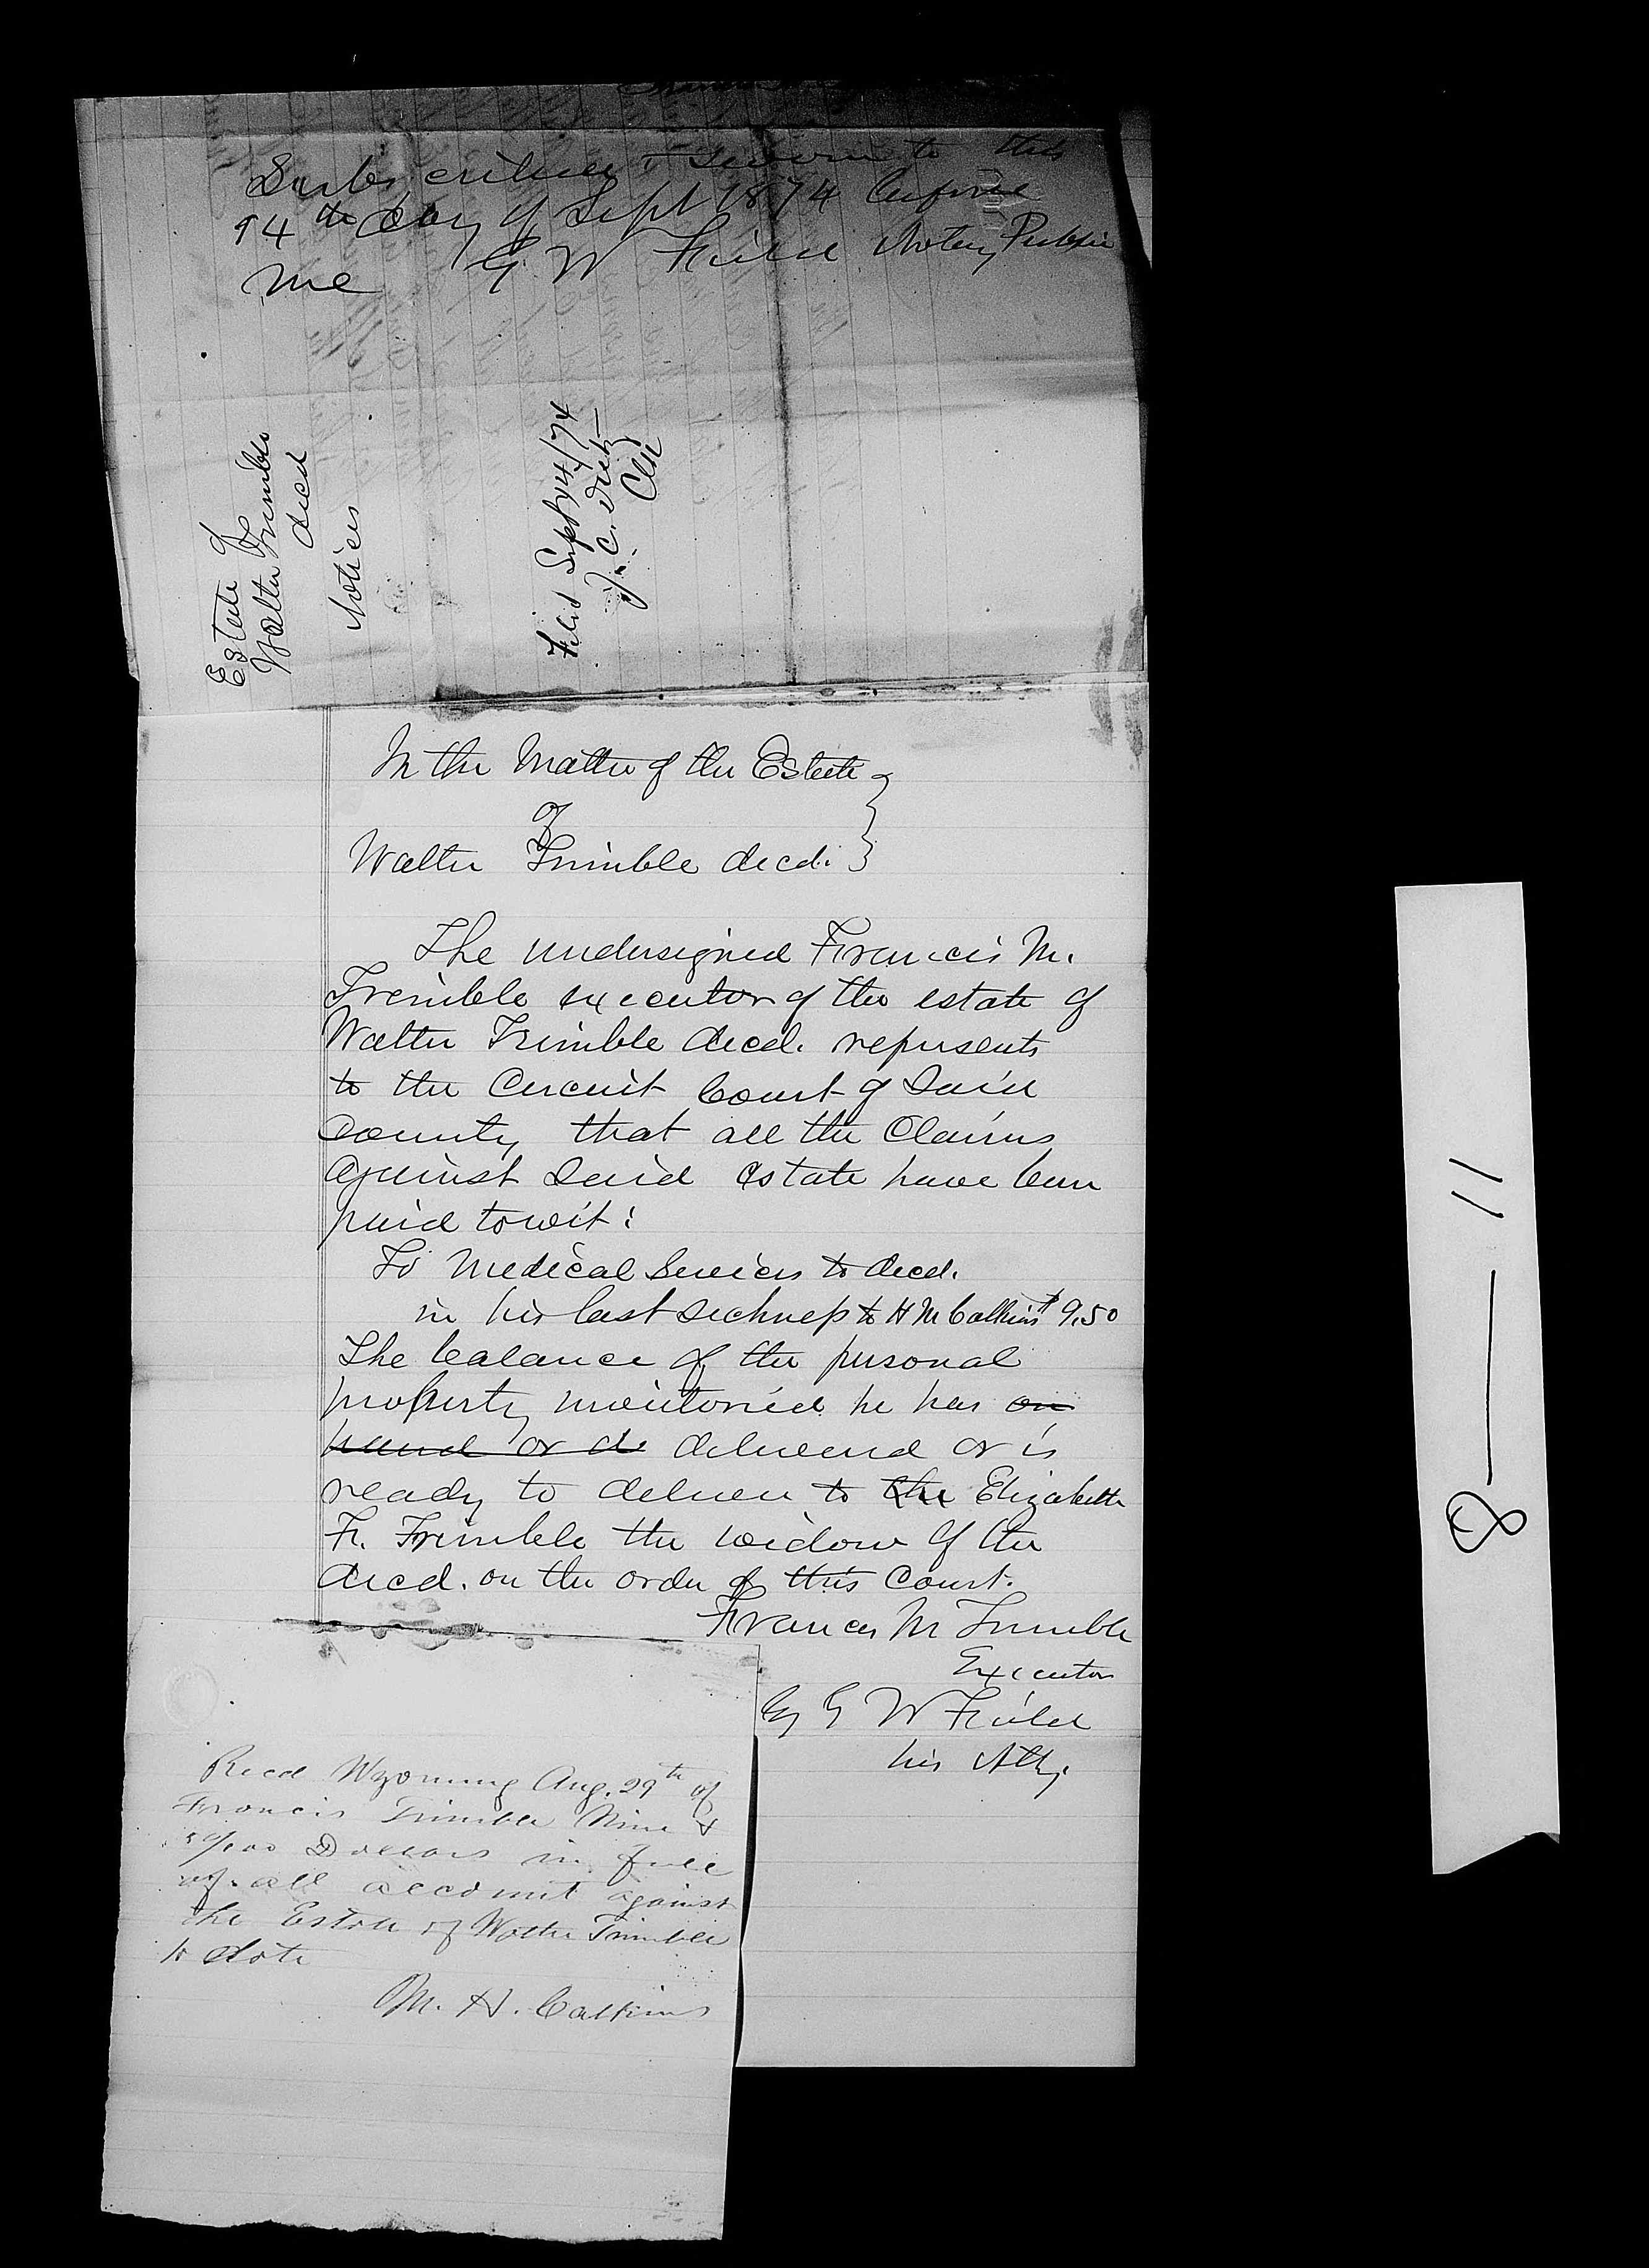 Subscribed & sworn to this
14th day of Sept 1874 before
me G W Field Notary Public
Estate of
Walter Trimble
decd
Notices
Filed Sept 14/74
J. C. Dietz
Clk
In the Matter of the Estate
of
Walter Trimble decd.
The undersigned Francis M.
Trimble executor of the estate of
Walter Trimble decd. represents
to the Circuit Court of Said
County that all the Claims
against Said estate have been
paid towit:
To Medical Services to decd.
in his last sickness to H M Calkins $ 9.50
The balance of the personal
property mentioned he has on
hand or de delivered or is
ready to deliver to the Elizabeth
F. Trimble the widow of the
decd. on the order of this Court.
Francis M Trimble
Executor
By G W Field
his Atty.
Recd Wyoming Aug. 29th of
Francis Trimble Nine &
50/100 Dollars in full
of all account against
the Estate of Walter Trimble
to date
M. H. Calkins
8 — 11